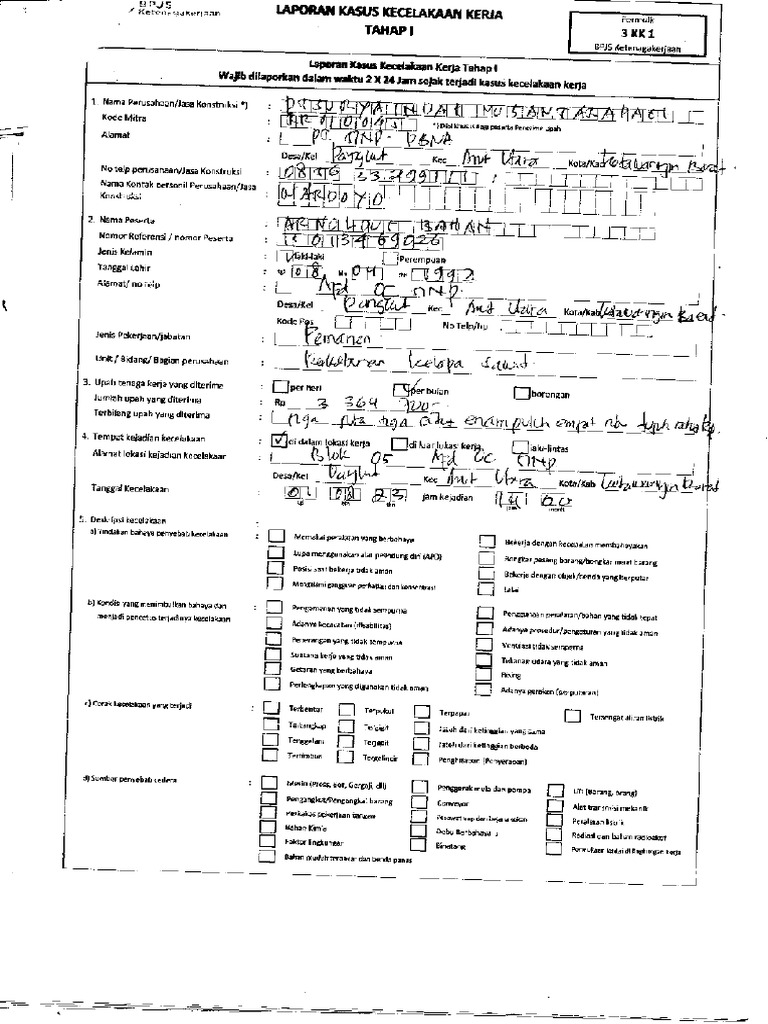 BPJS
Ketenagakerjaan
LAPORAN KASUS KECELAKAAN KERJA
TAHAP I
Formulir
3 KK 1
BPJS Ketenagakerjaan
Laporan Kasus Kecelakaan Kerja Tahap I
Wajib dilaporkan dalam waktu 2 X 24 Jam sejak terjadi kasus kecelakaan kerja
1. Nama Perusahaan/Jasa Konstruksi *) :
Kode Mitra : *) Diisi khusus bagi peserta Penerima upah
Alamat : PT. MNP -
Desa/Kel Pangkut Kec Arut Utara Kota/Kab Kotawaringin Barat
No telp perusahaan/Jasa Konstruksi :
Nama Kontak personil Perusahaan/Jasa Konstruksi : WARDOYO
2. Nama Peserta :
Nomor Referensi / nomor Peserta :
Jenis Kelamin : Laki-laki Perempuan
Tanggal Lahir : 08 04 1992
Alamat/ no telp : Afd OC MNP
Desa/Kel Pangkut Kec Arut Utara Kota/Kab Kotawaringin Barat
Kode Pos No Telp/hp :
Jenis Pekerjaan/jabatan : Pemanen
Unit / Bidang/ Bagian perusahaan : Perkebunan kelapa sawit
3. Upah tenaga kerja yang diterima : per hari per bulan borongan
Jumlah upah yang diterima : Rp 3 364 700
Terbilang upah yang diterima : tiga juta tiga ratus enam puluh empat ribu tujuh ratus
4. Tempat kejadian kecelakaan : di dalam lokasi kerja di luar lokasi kerja lalu-lintas
Alamat lokasi kejadian kecelakaan : Blok 05 Afd OC MNP
Desa/Kel Pangkut Kec Arut Utara Kota/Kab Kotawaringin Barat
Tanggal Kecelakaan : 01 02 23 jam kejadian
5. Deskripsi kecelakaan :
a) Tindakan bahaya penyebab kecelakaan : Memakai peralatan yang berbahaya Bekerja dengan kecepatan membahayakan
Lupa menggunakan alat pelindung diri (APD) Bongkar pasang barang/bongkar muat barang
Posisi saat bekerja tidak aman Bekerja dengan objek/benda yang berputar
Mengalami gangguan perhatian dan konsentrasi Lalai
b) Kondisi yang menimbulkan bahaya dan menjadi pencetus terjadinya kecelakaan : Pengamanan yang tidak sempurna Penggunaan peralatan/bahan yang tidak tepat
Adanya kecacatan (disabilitas) Adanya prosedur/pengaturan yang tidak aman
Penerangan yang tidak sempurna Ventilasi tidak sempurna
Suasana kerja yang tidak aman Tekanan udara yang tidak aman
Getaran yang berbahaya Bising
Perlengkapan yang digunakan tidak aman Adanya gerakan (perputaran)
c) Corak kecelakaan yang terjadi : Terbentur Terpukul Terpapar Tersengat aliran listrik
Tertangkap Terjepit Jatuh dari ketinggian yang sama
Tenggelam Jatuh dari ketinggian berbeda
Tertimbun Tergelincir Penghisapan (Penyerapan)
d) Sumber penyebab cedera : Mesin (Press, Bor, Gergaji, dll) Penggerak mula dan pompa Lift (barang, orang)
Pengangkut/Pengangkat barang Conveyor Alat transmisi mekanik
Perkakas pekerjaan tangan Pesawat uap dan bejana tekan Peralatan listrik
Bahan Kimia Debu Berbahaya Radiasi dan bahan radioaktif
Faktor lingkungan Binatang Permukaan lantai di lingkungan kerja
Bahan mudah terbakar dan benda panas